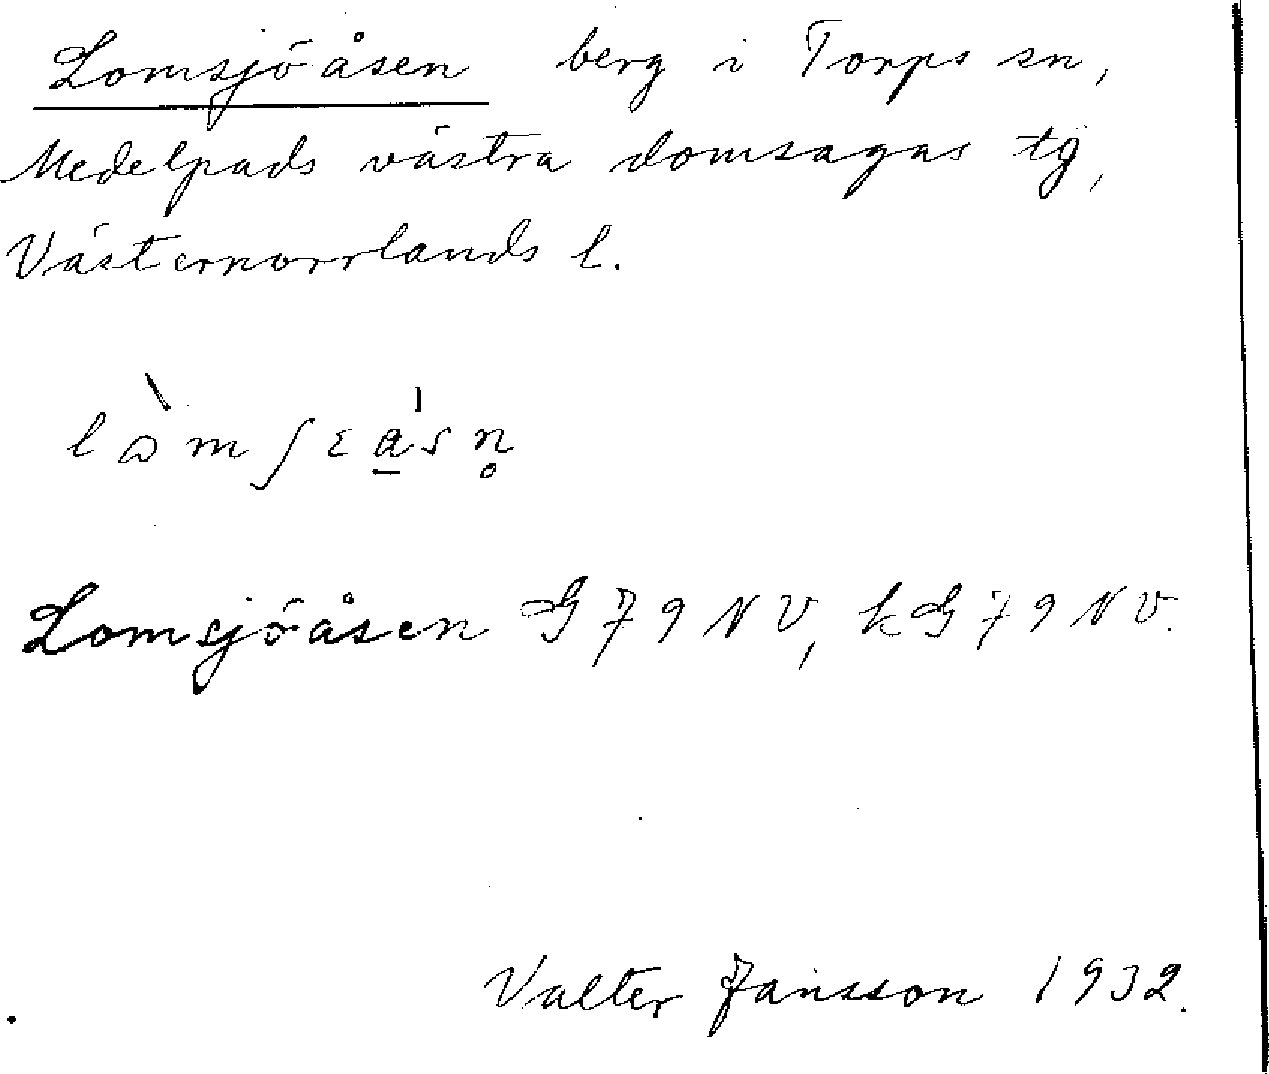 Lomsjöåsen berg i Torps sn,
Medelpads västra domsagas tg,
Västernorrlands l.
Lomsjöåsen G 79 NV, kG 79 NV.
Valter Jansson 1932.